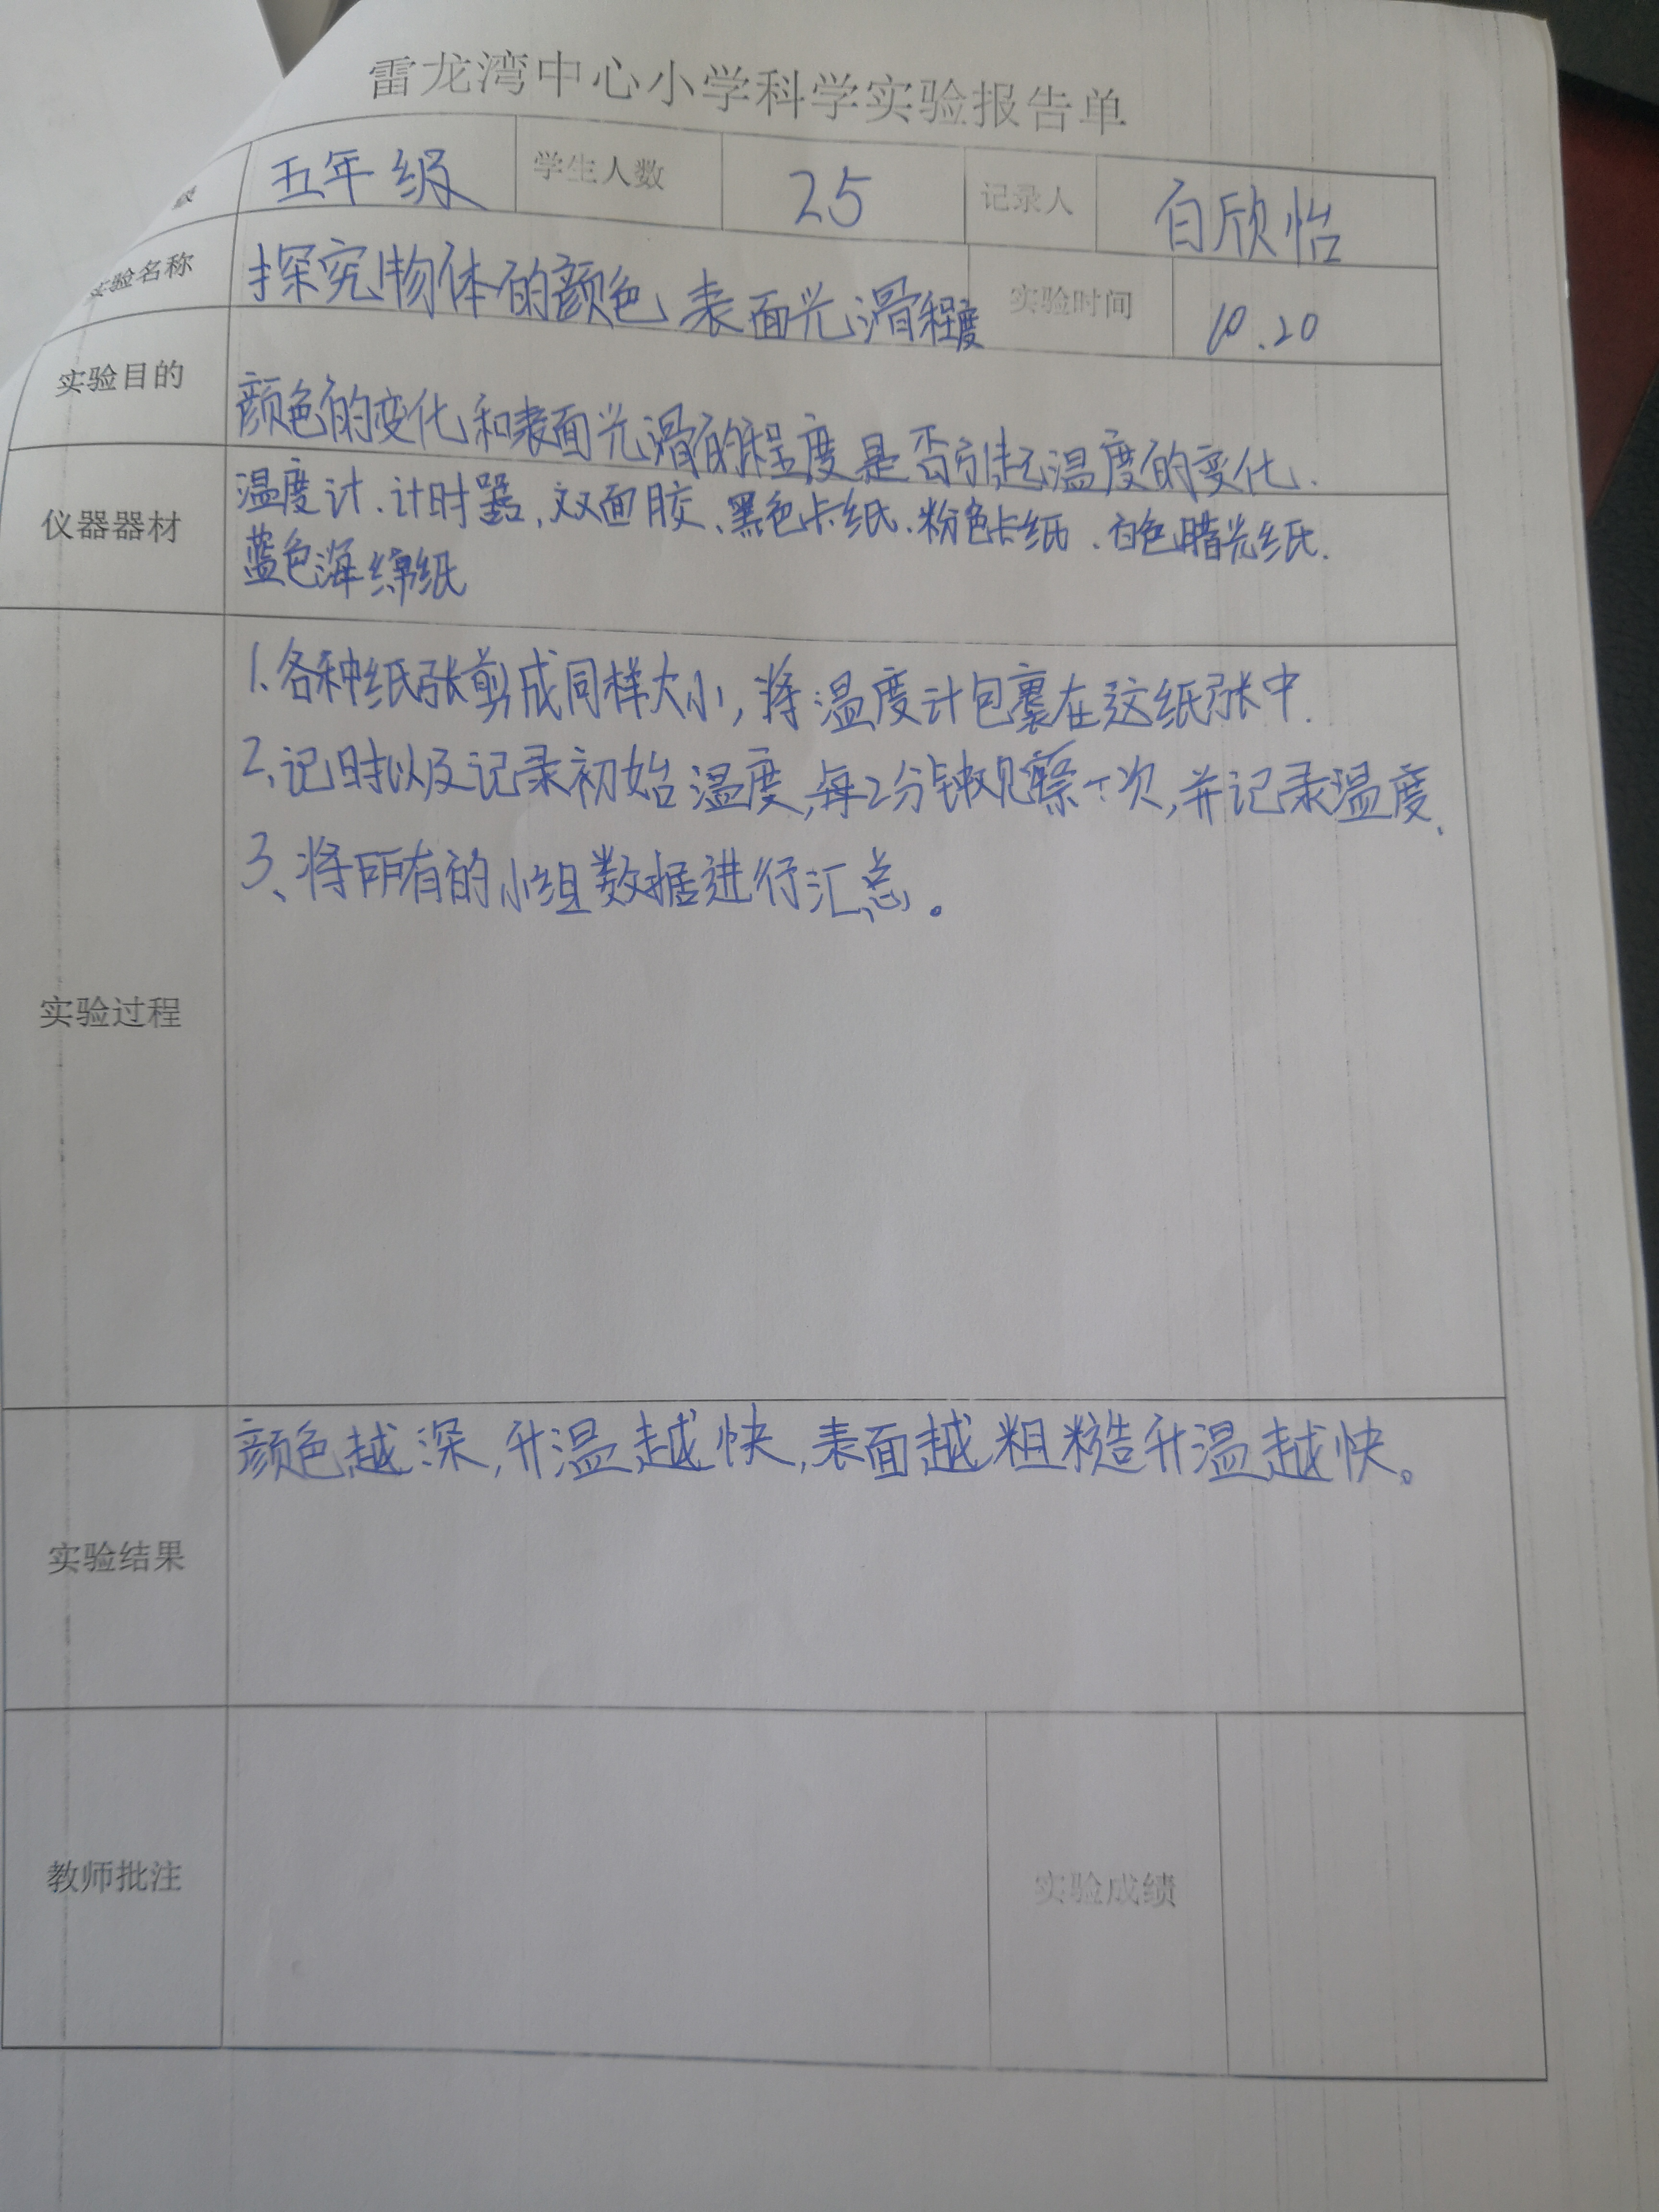 雷龙湾中心小学科学实验报告单
级 五年级 学生人数 25 记录人 白欣怡
实验名称 探究物体的颜色、表面光滑程度 实验时间 10.20
实验目的 颜色的变化和表面光滑的程度是否引起温度的变化.
仪器器材 温度计、计时器、双面胶、黑色卡纸、粉色卡纸、白色腊光纸.
蓝色海绵纸
实验过程
1、各种纸张剪成同样大小,将温度计包裹在这纸张中.
2、记时以及记录初始温度,每2分钟观察一次,并记录温度、
3、将所有的小组数据进行汇总。
实验结果 颜色越深,升温越快,表面越粗糙升温越快。
教师批注 实验成绩